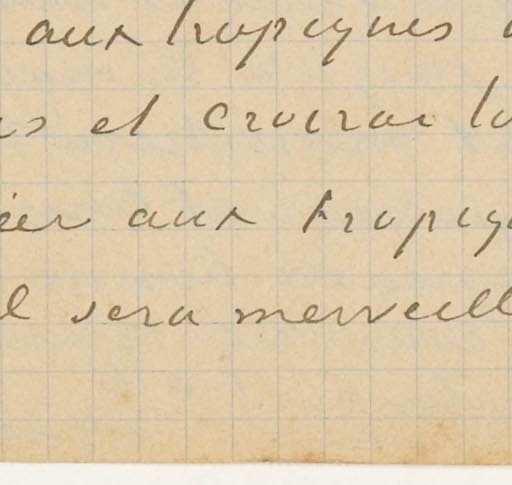 aux tropiques
et croirai
aux tropiq
sera merveill